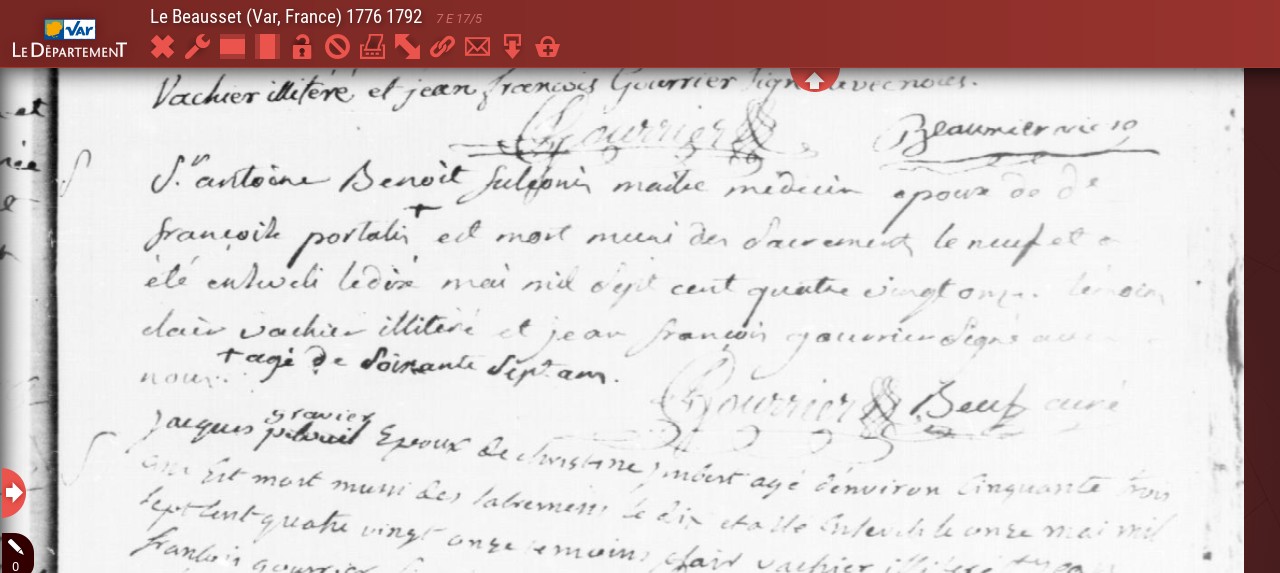 Le Beausset (Var, France) 1776 1792 7 E 17/5
Var
LE DÉPARTEMENT
Vachier illitéré et jean françois Gourrier signé avec nous.
Gourrier Beaumier vic
Sr antoine Benoit maitre médecin epoux de de
françoise portalis + est mort muni des Sacrements le neuf et a
été enseveli le dix mai mil sept cent quatre vingt onze. témoins
clair vachier illitéré et jean françois gourrier signé avec
nous.
+ agé de soixante sept ans.
Gourrier Beuf curé
gravier
jacques Epoux de christine jmbert agé d'environ Cinquante trois
ans Est mort muni des sacrements le dix et a été Enseveli le onze mai mil
sept cent quatre vingt onze temoins clair vachier illitéré et jean
francois gourrier
0